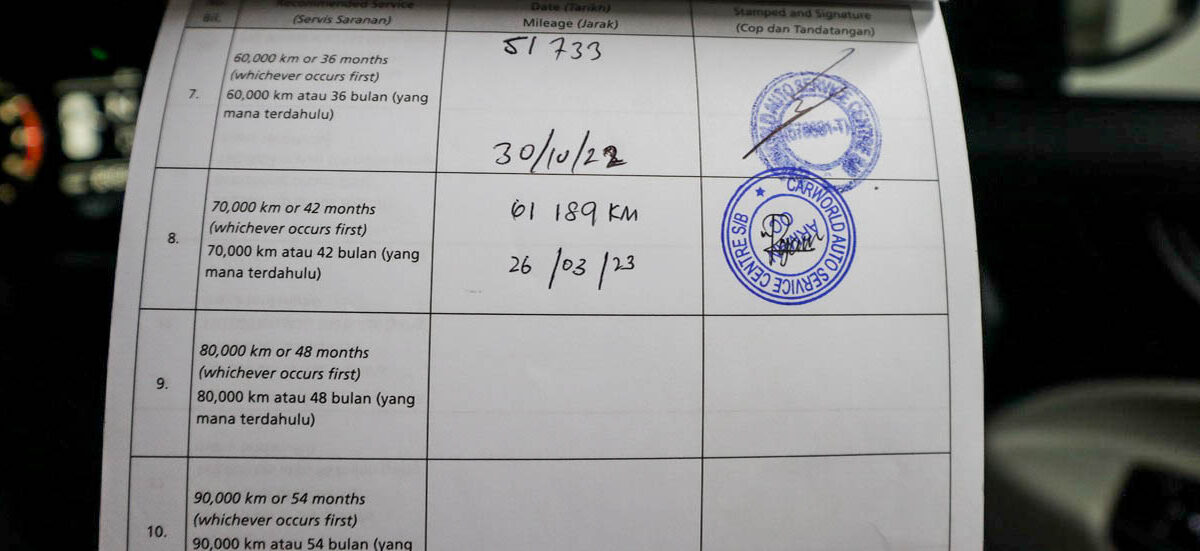 Bil.
Recommended Service
(Servis Saranan)
Date (Tarikh)
Mileage (Jarak)
Stamped and Signature
(Cop dan Tandatangan)
7.
60,000 km or 36 months
(whichever occurs first)
60,000 km atau 36 bulan (yang
mana terdahulu)
51 733
30/10/22
AUTO SERVICE CENTRE
8.
70,000 km or 42 months
(whichever occurs first)
70,000 km atau 42 bulan (yang
mana terdahulu)
61 189 KM
26/03/23
CARWORLD AUTO SERVICE CENTRE S/B
9.
80,000 km or 48 months
(whichever occurs first)
80,000 km atau 48 bulan (yang
mana terdahulu)
10.
90,000 km or 54 months
(whichever occurs first)
90,000 km atau 54 bulan (yang